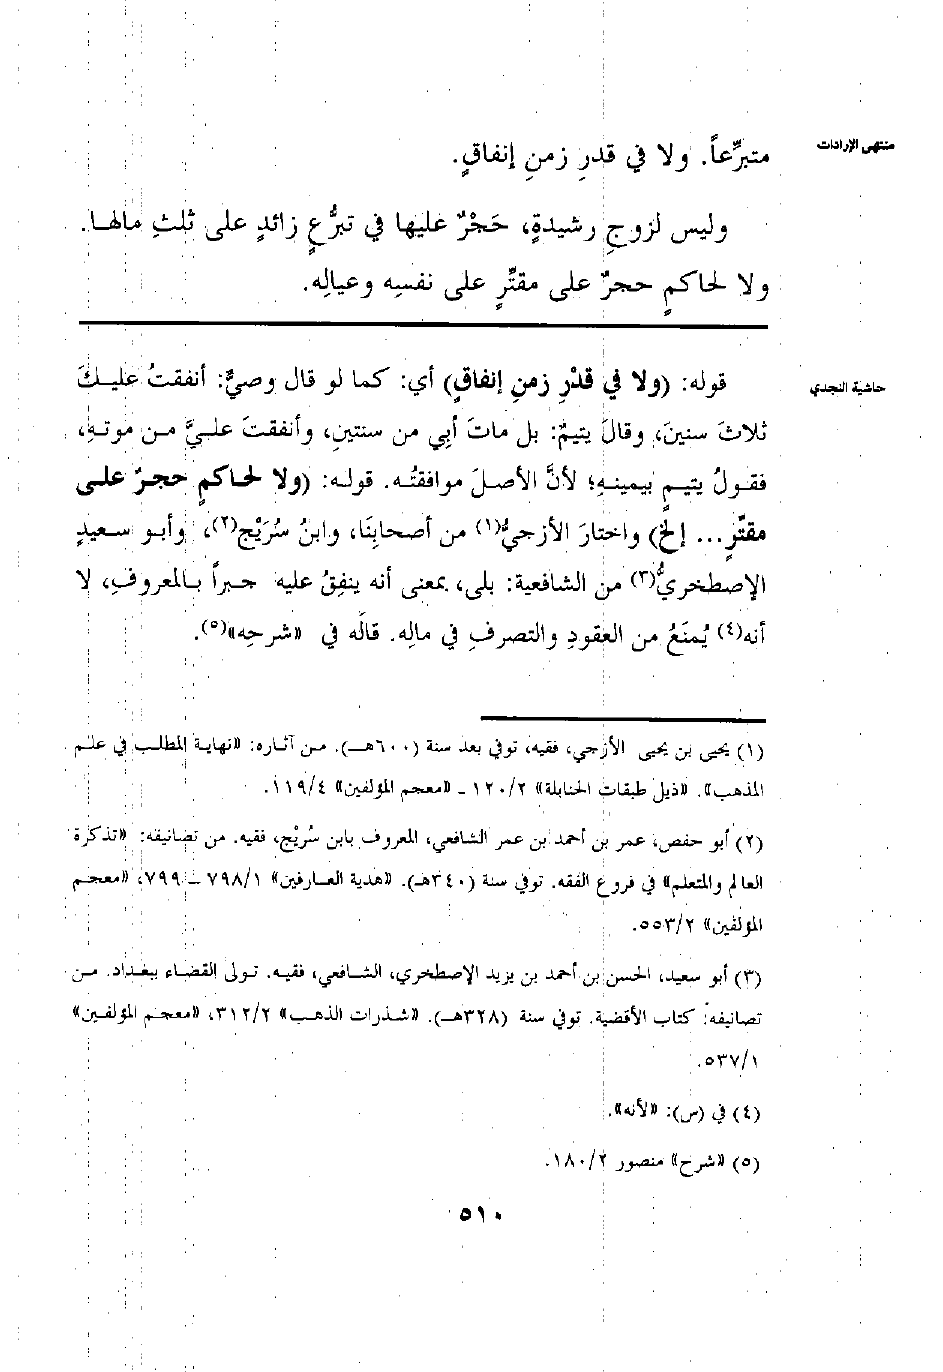 منتهى الإرادات
متبرِّعاً. ولا في قدرِ زمنِ إنفاقٍ.
وليس لزوجِ رشيدةٍ، حَجْرٌ عليها في تبرُّعٍ زائدٍ على ثلثِ مالها.
ولا لحاكمٍ حجرٌ على مقتِّرٍ على نفسِه وعيالِه.
حاشية النجدي
قوله: (ولا في قدْرِ زمنِ إنفاقٍ) أي: كما لو قال وصيٌّ: أنفقتُ عليكَ
ثلاثَ سنينَ، وقالَ يتيمٌ: بل ماتَ أبِي من سنتينِ، وأنفقتَ عليَّ من موتهِ،
فقولُ يتيمٍ بيمينهِ؛ لأنَّ الأصلَ موافقتُه. قوله: (ولا لحاكمٍ حجرٌ على
مقتِّرٍ... إلخ) واختارَ الأزجيُّ(١) من أصحابِنَا، وابنُ سُرَيْجٍ(٢)، وأبو سعيدٍ
الإصطخريُّ(٣) من الشافعية: بلى، بمعنى أنه ينفِقُ عليه جبراً بالمعروفِ، لا
أنه(٤) يُمنَعُ من العقودِ والتصرفِ في مالِه. قالَه في «شرحِه»(٥).
(١) يحيى بن يحيى الأزجي، فقيه، توفي بعد سنة (٦٠٠هـ). من آثاره: «نهاية المطلب في علم
المذهب». «ذيل طبقات الحنابلة» ١٢٠/٢ ـ «معجم المؤلفين» ١١٩/٤.
(٢) أبو حفص، عمر بن أحمد بن عمر الشافعي، المعروف بابن سُرَيْج، فقيه. من تصانيفه: «تذكرة
العالم والمتعلم» في فروع الفقه. توفي سنة (٣٤٠هـ). «هدية العارفين» ٧٩٨/١ ـ ٧٩٩، «معجم
المؤلفين» ٥٥٣/٢.
(٣) أبو سعيد، الحسن بن أحمد بن يزيد الإصطخري، الشافعي، فقيه. تولى القضاء ببغداد. من
تصانيفه: كتاب الأقضية. توفي سنة (٣٢٨هـ). «شذرات الذهب» ٣١٢/٢، «معجم المؤلفين»
٥٣٧/١.
(٤) في (س): «لأنه».
(٥) «شرح» منصور ١٨٠/٢.
٥١٠